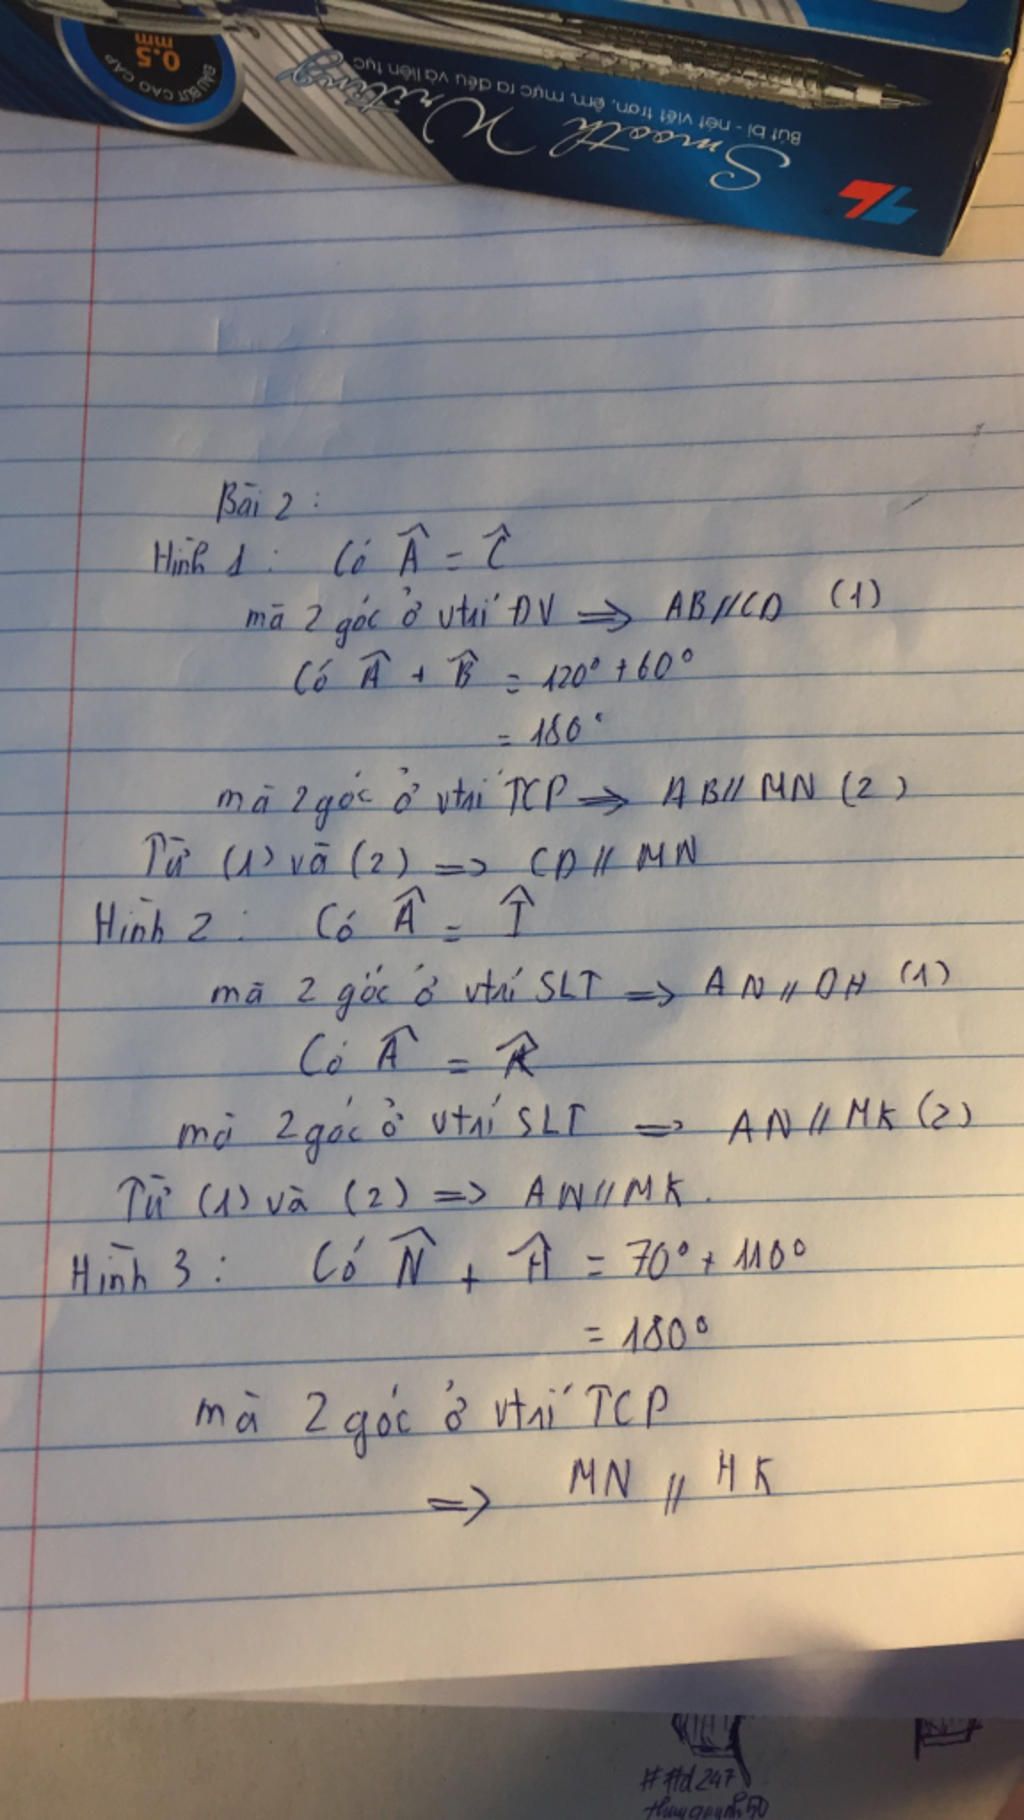 0.5
mm
ĐẦU BÚT CAO CẤP
Smooth Writing
Bút bi - nét viết trơn, êm, mực ra đều và liên tục
TL
Bài 2 :
Hình 1 : Có Â = Ĉ
mà 2 góc ở vtrí ĐV => AB // CD (1)
Có Â + B̂ = 120° + 60°
= 180°
mà 2 góc ở vtrí TCP => AB // MN (2)
Từ (1) và (2) => CD // MN
Hình 2 : Có Â = Î
mà 2 góc ở vtrí SLT => AN // OH (1)
Có Â = K̂
mà 2 góc ở vtrí SLT => AN // MK (2)
Từ (1) và (2) => AN // MK.
Hình 3 : Có N̂ + Ĥ = 70° + 110°
= 180°
mà 2 góc ở vtrí TCP
=> MN // HK
##d247
thuyquynh50